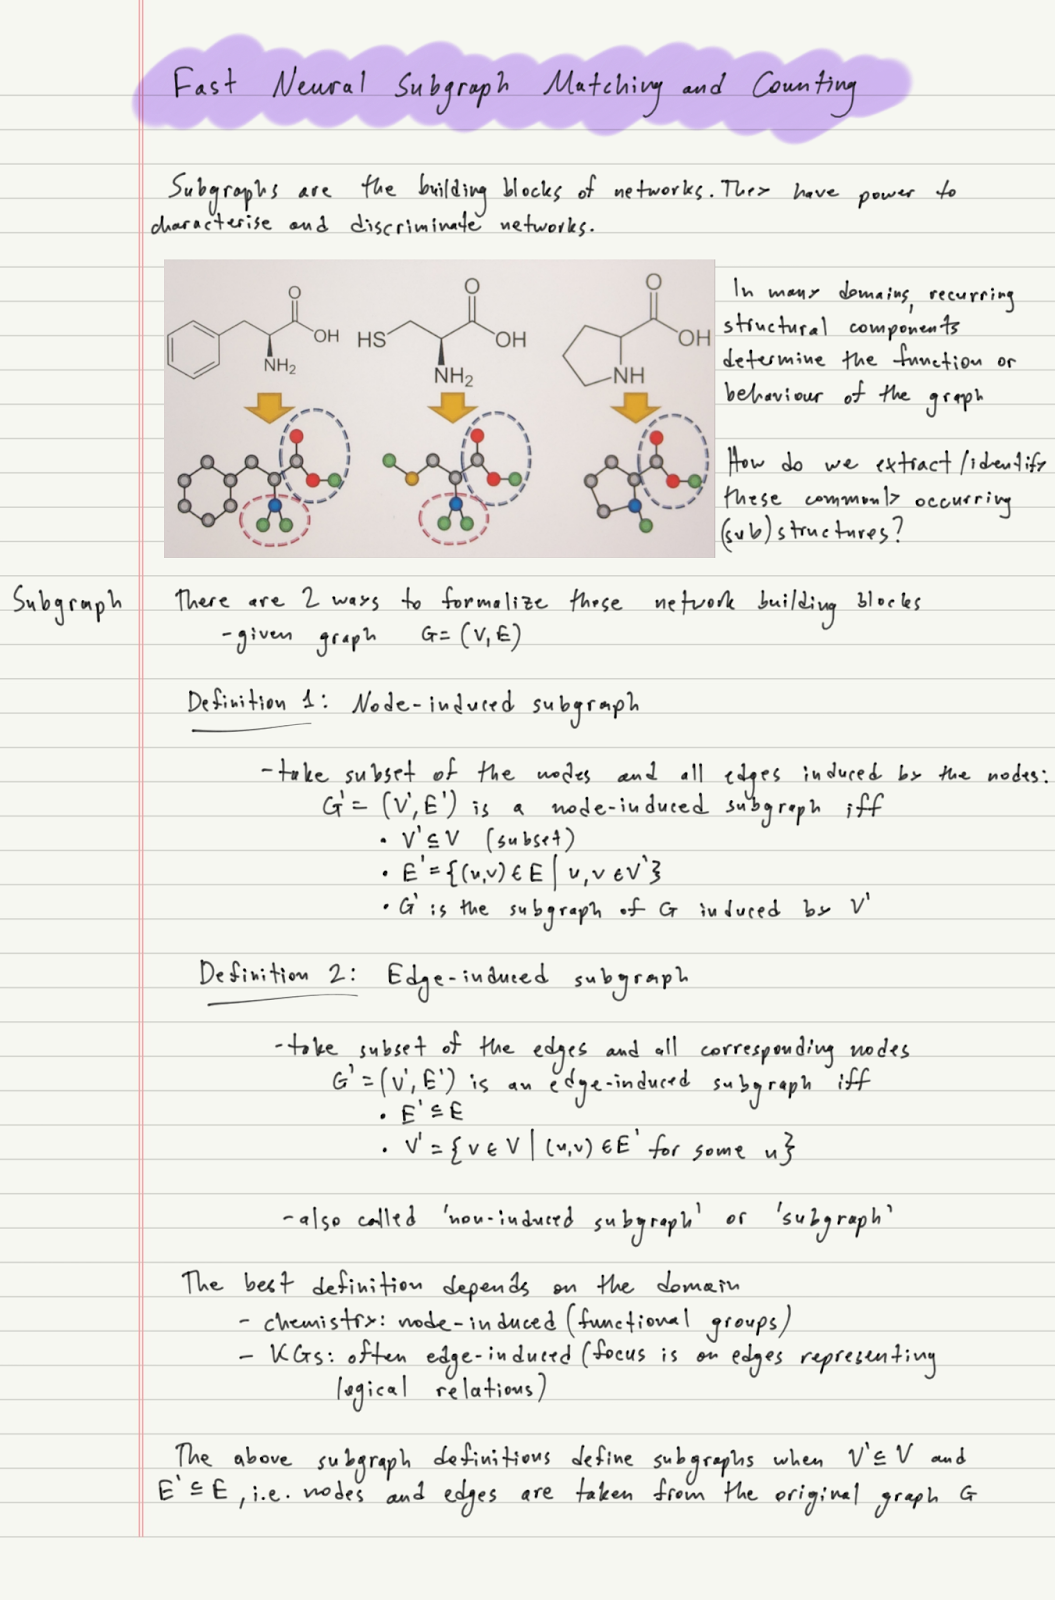 Fast Neural Subgraph Matching and Counting
Subgraphs are the building blocks of networks. They have power to
characterise and discriminate networks.
O
OH
NH₂
O
HS
OH
NH₂
O
OH
NH
In many domains, recurring
structural components
determine the function or
behaviour of the graph
How do we extract/identify
these commonly occurring
(sub)structures?
Subgraph
There are 2 ways to formalize these network building blocks
- given graph G = (V, E)
Definition 1: Node-induced subgraph
- take subset of the nodes and all edges induced by the nodes:
G' = (V', E') is a node-induced subgraph iff
• V' ⊆ V (subset)
• E' = {(u,v) ∈ E | u, v ∈ V'}
• G' is the subgraph of G induced by V'
Definition 2: Edge-induced subgraph
- take subset of the edges and all corresponding nodes
G' = (V', E') is an edge-induced subgraph iff
• E' ⊆ E
• V' = {v ∈ V | (u,v) ∈ E' for some u}
- also called 'non-induced subgraph' or 'subgraph'
The best definition depends on the domain
- chemistry: node-induced (functional groups)
- KGs: often edge-induced (focus is on edges representing
logical relations)
The above subgraph definitions define subgraphs when V' ⊆ V and
E' ⊆ E, i.e. nodes and edges are taken from the original graph G